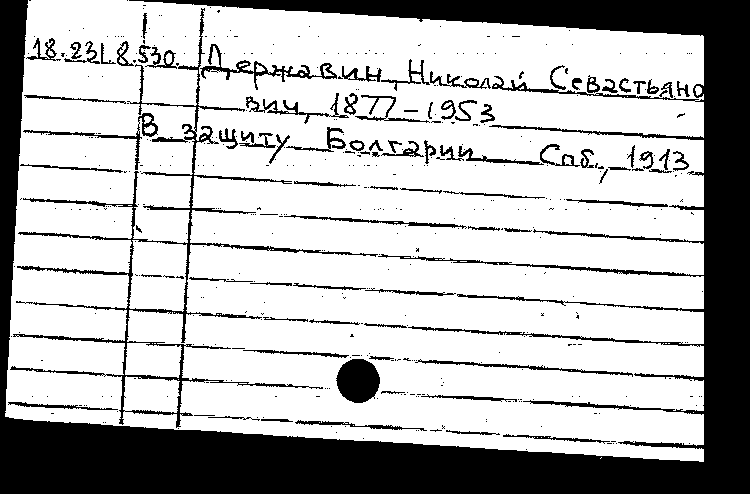 18.231.8.530. Державин, Николай Севастьяно
вич, 1877-1953
В защиту Болгарии. Спб., 1913